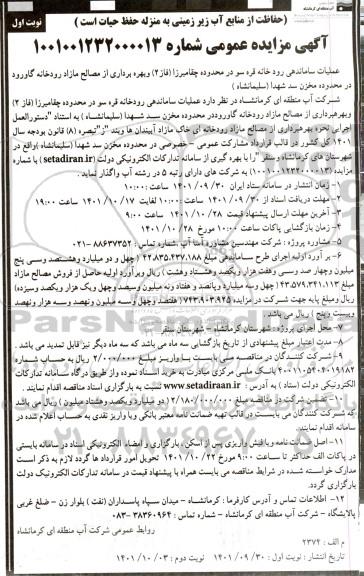 (حفاظت از منابع آب زیر زمینی به منزله حفظ حیات است)
نوبت اول
آگهی مزایده عمومی شماره ۱۰۰۱۰۰۱۲۳۲۰۰۰۰۱۳
عملیات ساماندهی رودخانه قره سو در محدوده چقامیرزا (فاز ۲) وبهره برداری از مصالح مازاد رودخانه گاورود
در محدوده مخزن سد شهدا (سلیمانشاه)
شرکت آب منطقه ای کرمانشاه در نظر دارد عملیات ساماندهی رودخانه قره سو در محدوده چقامیرزا (فاز ۲)
وبهره‌برداری از مصالح مازاد رودخانه گاوروددر محدوده مخزن سد شهدا (سلیمانشاه) به استناد "دستورالعمل
اجرایی نحوه بهره‌برداری از مصالح مازاد رودخانه ای خاک مازاد آببندان ها وبند "ز"تبصره (۸) قانون بودجه سال
۱۴۰۱ کل کشور در قالب قرارداد مشارکت عمومی - خصوصی در محدوده مخزن سد شهدا (سلیمانشاه) واقع در
شهرستان های کرمانشاه وسنقر "را با بهره گیری از سامانه تدارکات الکترونیکی دولت (setadiran.ir) با شماره
مزایده (۱۰۰۱۰۰۱۲۳۲۰۰۰۰۱۳) به شرکت های دارای رتبه ۵ در رشته آب واگذار نماید .
۱- زمان انتشار در سامانه ستاد ایران ۱۴۰۱/۰۹/۳۰ ساعت ۱۰:۰۰
۲- مهلت دریافت اسناد از ۱۴۰۱/۰۹/۳۰ ساعت ۱۰:۰۰ لغایت ۱۴۰۱/۱۰/۱۷ ساعت ۱۹:۰۰
۳- آخرین مهلت ارسال پیشنهاد قیمت ۱۴۰۱/۱۰/۲۸ ساعت ۹:۰۰
۴- زمان بازگشایی پاکات ساعت ۱۰:۰۰ مورخ ۱۴۰۱/۱۰/۲۸
۵- مشاوره پروژه : شرکت مهندسین مشاور آسا آب .شماره تماس : ۸۸۶۳۷۳۵۲-۰۲۱
۶- بر آورد اولیه اجرای طرح ساماندهی مبلغ ۴۲.۸۳۵.۴۳۷.۱۸۸ (چهل و دو میلیارد وهشتصد وسی پنج
میلیون وچهار صد رسی وهفت هزار ویکصد وهشتاد وهشت) ریال وبرآورد اولیه حاصل از فروش مصالح مازاد
مبلغ ۴۳.۵۷۹.۳۴۱.۱۱۳ (چهل وسه میلیارد وپانصد و هفتاد ونه میلیون وسیصد وچهل ویک هزار ویکصد وسیزده)
ریال ومبلغ پایه جهت شرکت در مزایده ۷۴۳.۹۰۳.۹۲۵ (هفتصد وچهل وسه میلیون ونهصد وسه هزار ونهصد
وبیست وپنج) ریال می باشد .
۷- محل اجرای پروژه: شهرستان کرمانشاه – شهرستان سنقر
۸- مدت اعتبار مبلغ پیشنهادی از تاریخ بازگشایی سه ماه می باشد که سه ماه دیگر نیز قابل تمدید می باشد .
۹- شرکت کنندگان در مناقصه می بایست با واریز مبلغ ۲/۰۰۰/۰۰۰ ریال به حساب شماره
بانک ملی مرکزی مبادرت به خرید اسناد نموده واز طریق درگاه سامانه تدارکات
الکترونیکی دولت (ستاد) به آدرس: www.setadiran.ir نسبت به بارگزاری اسناد مناقصه اقدام نمایند .
۱۰- تضمین شرکت در مناقصه مبلغ ۲/۱۸۰/۰۰۰/۰۰۰ (دو میلیارد ویکصد وهشتاد میلیون) ریال می باشد
که شرکت کنندگان می بایست در قالب تهیه ضمانت نامه معتبر بانکی و یا واریز نقدی به حساب اعلام شده در
سامانه اقدام نمایند.
۱۱- اصل ضمانت نامه ویا فیش واریزی پس از اسکن ، بارگزاری و امضاء الکترونیکی اسناد در سامانه بایستی
در پاکات الف حداکثر تا ساعت ۹:۰۰ مورخ ۱۴۰۱/۱۰/۲۲ تحویل امور قرارداد ها گردد لازم به ذکر است
مدارک خواسته شده در شرایط مناقصه می بایست همراه با پیشنهاد قیمت در سامانه تدارکات الکترونیک دولت
بارگزاری گردد.
۱۲- اطلاعات تماس و آدرس کارفرما: کرمانشاه – میدان سپاه پاسداران (نفت) بلوار زن – ضلع غربی
پالایشگاه – شرکت آب منطقه ای کرمانشاه – شماره تماس : ۳۸۳۶۰۹۶۴-۰۸۳
روابط عمومی شرکت آب منطقه ای کرمانشاه
م الف : ۲۳۷۴
تاریخ انتشار : نوبت اول : ۱۴۰۱/۰۹/۳۰ نوبت دوم : ۱۴۰۱/۱۰/۰۳